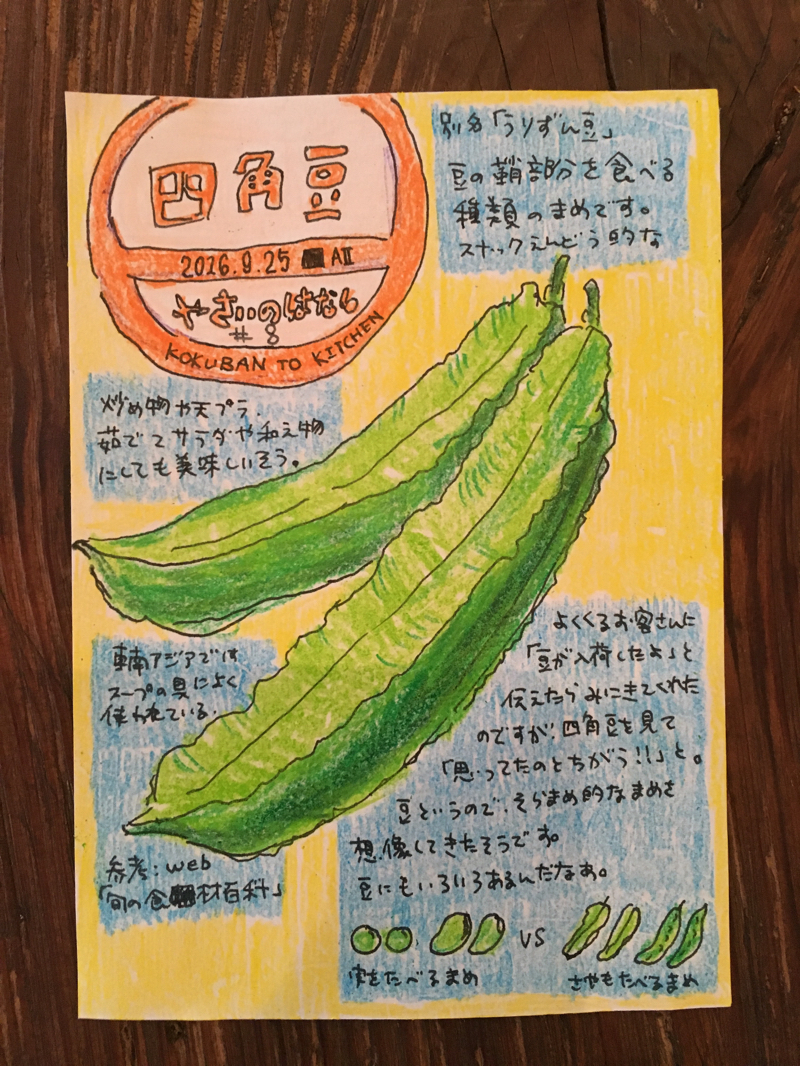 四角豆
2016.9.25 AII
やさいのはなし
#8
KOKUBAN TO KITCHEN
別名「うりずん豆」
豆の鞘部分を食べる
種類のまめです。
スナックえんどう的な
炒め物や天プラ、
茹でてサラダや和え物
にしても美味しいそう。
東南アジアでは
スープの具によく
使われている。
参考:web
「旬の食材百科」
よくくるお客さんに
「豆が入荷したよ」と
伝えたらみにきてくれた
のですが、四角豆を見て
「思ってたのとちがう!!」と。
豆というので、そらまめ的なまめを
想像してきたそうです。
豆にもいろいろあるんだなぁ。
VS
実をたべるまめ
さやもたべるまめ